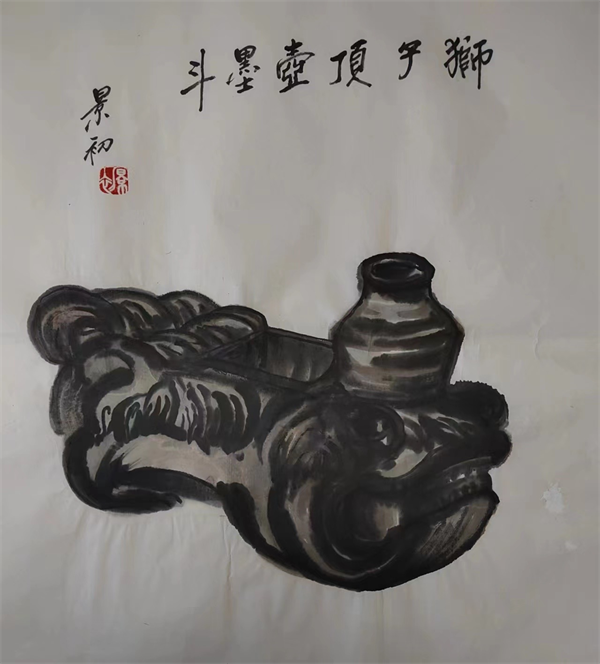 獅子頂壺墨斗
景初
景初